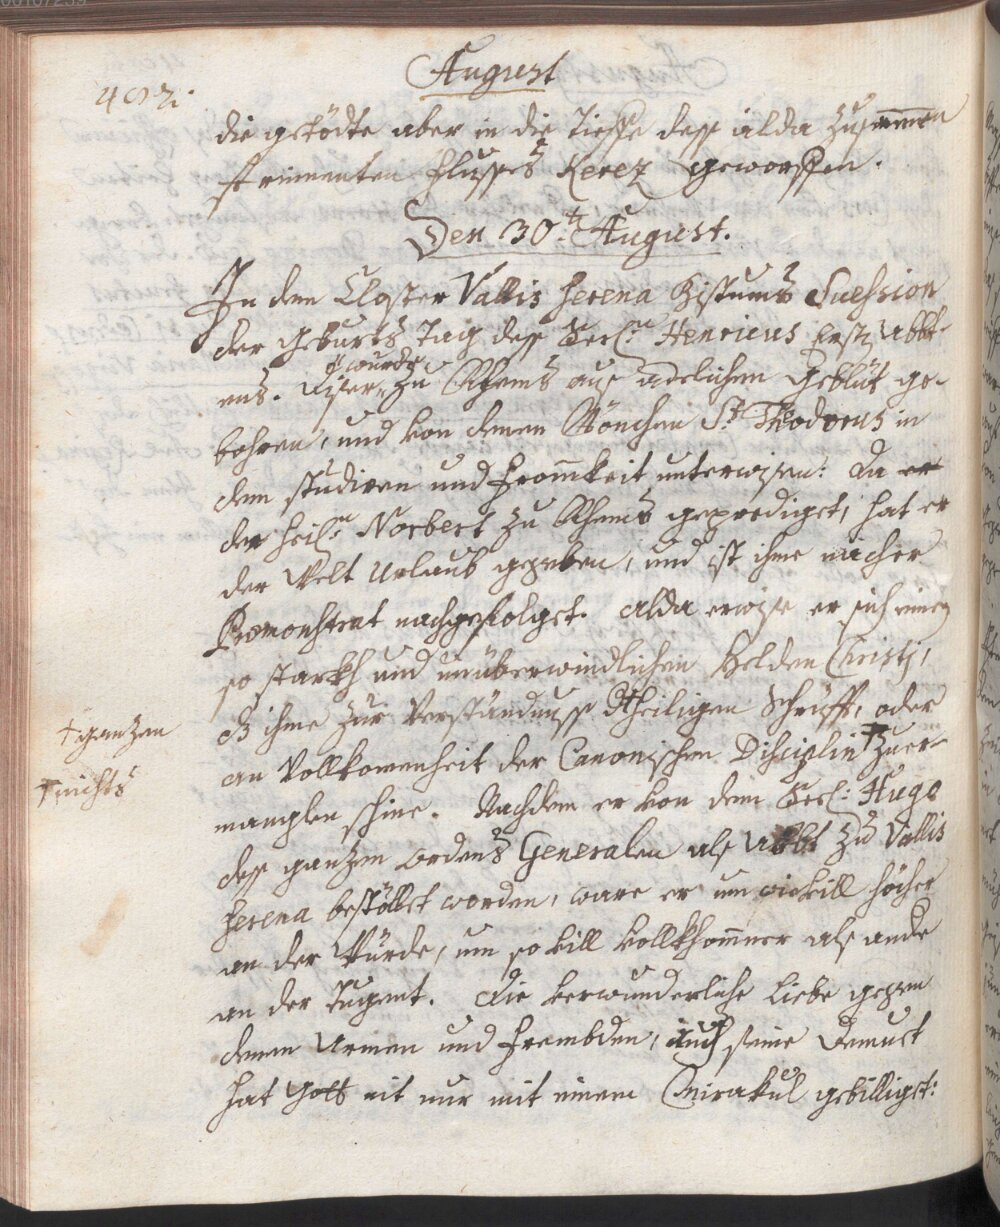 August
402.
die getödte aber in die Tieffe dess alda zusammen
strimenten Flusses Kerez geworffen.
Den 30.ten August.
In dem Closter Vallis serena Bistums Suession
der Geburts Tag dess Seel.n Henricus erste Abbt
ens. Diser wurde zu Rhems aus adelichem Geblüt ge-
bohren, und von denen Mönchen St. Theodorus in
dem studiren und Frommkeit unterwisen: Da er
der heil.n Norbert zu Rhems geprediget, hat er
der Welt Urlaub gegeben, und ist ihme nacher
Premonstrat nachgefolget. Alda erwise er sich einen
so starkh und unüberwindlichen Helden Christi,
ihme zur Verständnuss heiligen Schrüfft, oder
† ganzen
an Vollkomenheit der Canonischen Disciplin † zuer-
† nichts
manglen schine. Nachdem er von dem Seel: Hugo
dess ganzen Ordens Generalen als Abbt zu Vallis
serena bestöllet worden, ware er um vill höcher
an der Würde, um so vill vollkhommner als ande
an der Tugent. Die verwunderliche Liebe gegen
denen Armen und Frembden, auch seine Demuet
hat Gott nit nur mit einem Mirakul gebilliget: